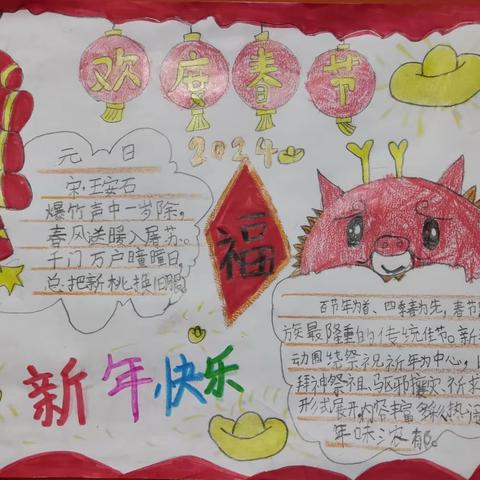 欢度春节
2024
元日
宋:王安石
爆竹声中一岁除,
春风送暖入屠苏.。
千门万户曈曈日,
总把新桃换旧
福
百节年为首、四季春为先,春节
族最隆重的传统佳节。新
动围绕祭祝祈年为中心,
拜神祭祖、驱邪攘灾、祈求
形式展开,内容丰富多彩,热
年味浓
新年快乐